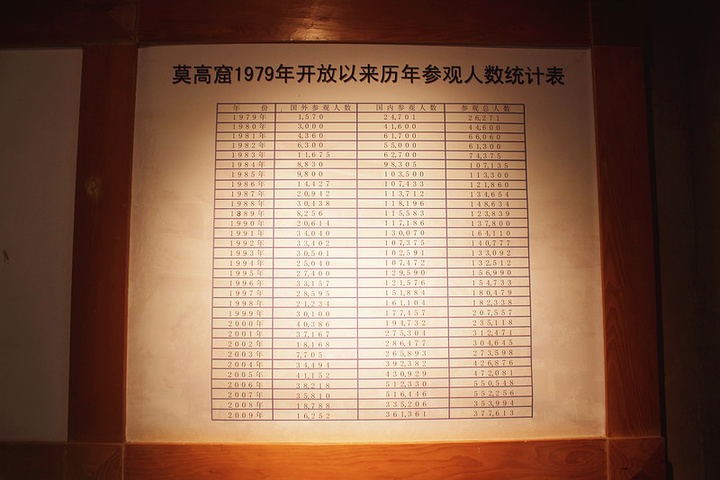 莫高窟1979年开放以来历年参观人数统计表
年 份 国外参观人数 国内参观人数 参观总人数
1979年 1,570 24,701 26,271
1980年 3,000 41,600 44,600
1981年 4,360 61,700 66,060
1982年 6,300 55,000 61,300
1983年 11,675 62,700 74,375
1984年 8,830 98,305 107,135
1985年 9,800 103,500 113,300
1986年 14,427 107,433 121,860
1987年 20,942 113,712 134,654
1988年 30,438 118,196 148,634
1989年 8,256 115,583 123,839
1990年 20,614 117,186 137,800
1991年 34,040 130,070 164,110
1992年 33,402 107,375 140,777
1993年 30,501 102,591 133,092
1994年 25,040 107,472 132,512
1995年 27,400 129,590 156,990
1996年 33,157 121,576 154,733
1997年 28,595 151,884 180,479
1998年 21,234 161,104 182,338
1999年 30,100 177,457 207,557
2000年 40,386 194,732 235,118
2001年 37,167 275,304 312,471
2002年 18,168 286,477 304,645
2003年 7,705 265,893 273,598
2004年 34,494 392,382 426,876
2005年 41,152 430,929 472,081
2006年 38,218 512,330 550,548
2007年 35,810 516,446 552,256
2008年 18,788 335,206 353,994
2009年 16,252 361,361 377,613